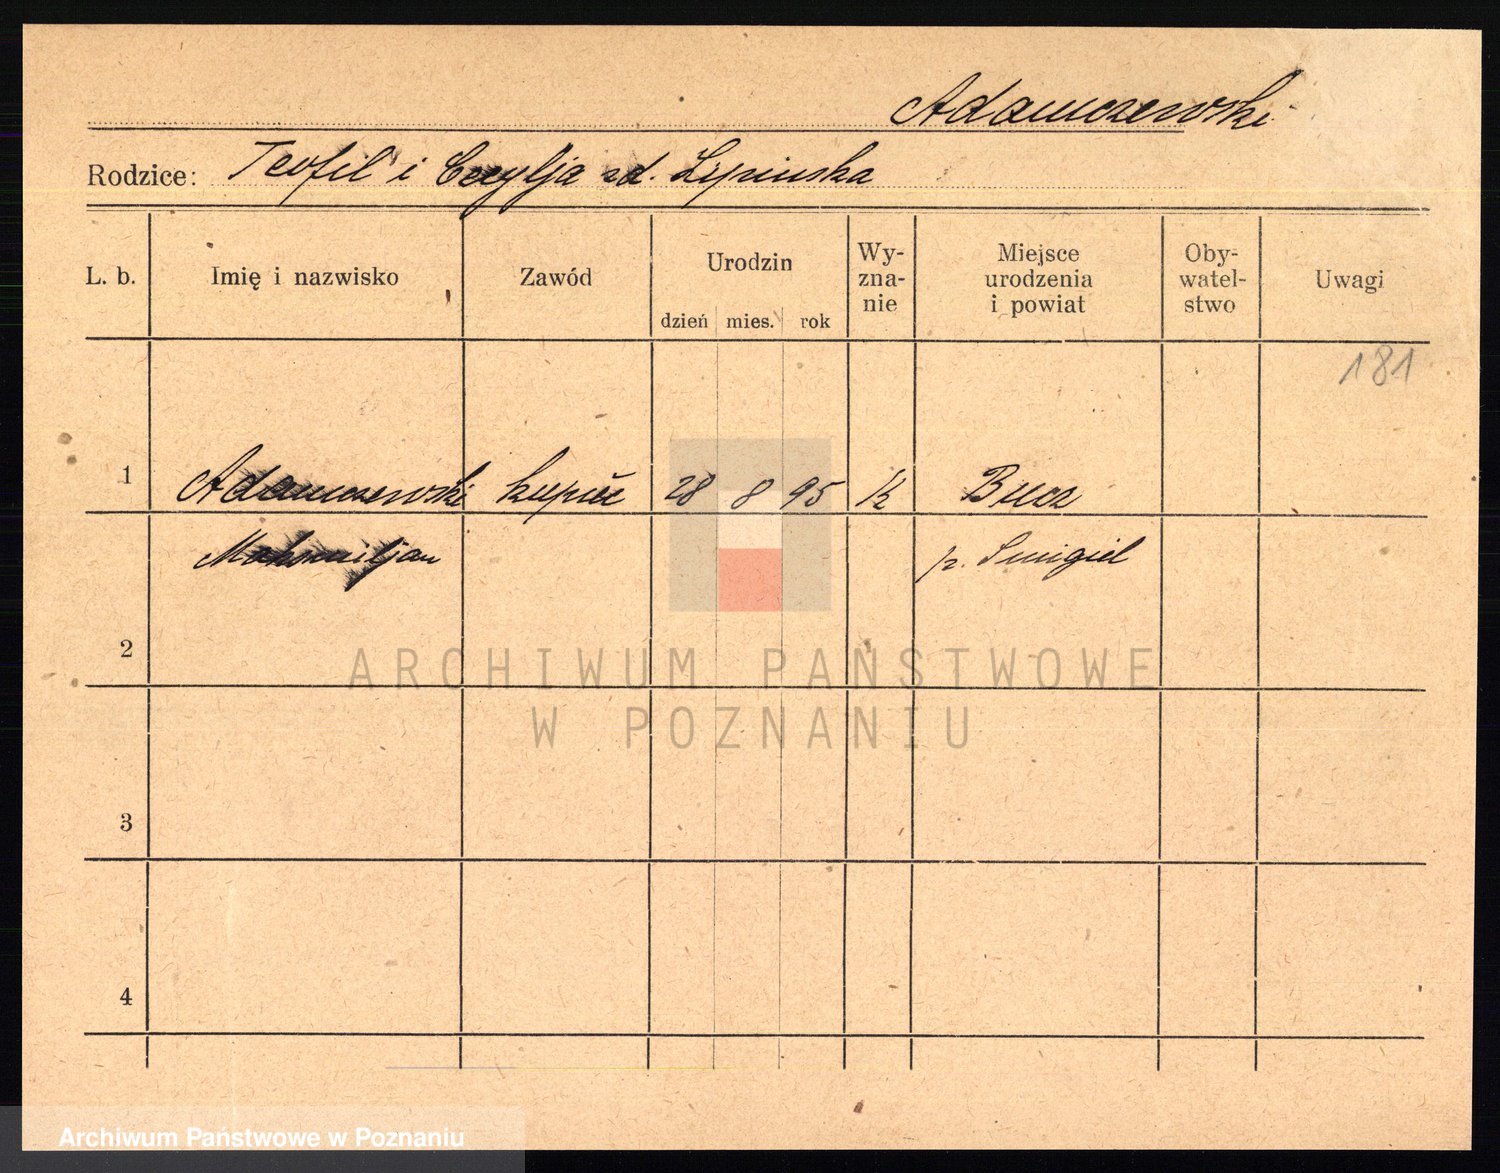 Adamczewski
Rodzice: Teofil i Cecylja zd. Lipinska
L. b. Imię i nazwisko Zawód Urodzin dzień mies. rok Wy-zna-nie Miejsce urodzenia i powiat Oby-watel-stwo Uwagi
181
1 Adamczewski kupiec 28 8 95 k Bucz
Maksmiljan p. Smigiel
2
3
4
ARCHIWUM PAŃSTWOWE
W POZNANIU
Archiwum Państwowe w Poznaniu